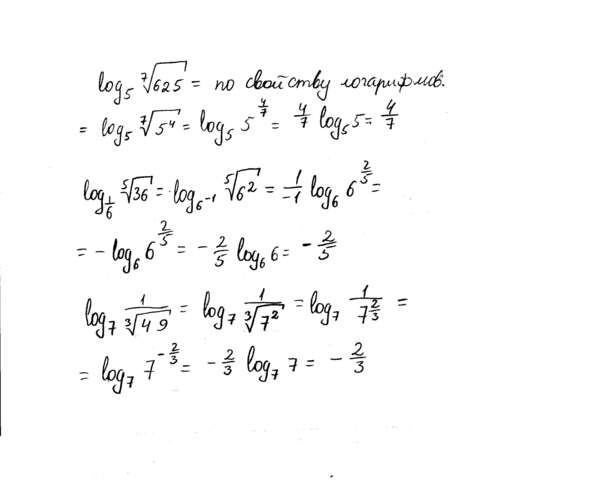 log₅ ⁷√625 = по свойству логарифмов.
= log₅ ⁷√5⁴ = log₅ 5^(4/7) = 4/7 log₅ 5 = 4/7
log_(1/6) ⁵√36 = log_(6⁻¹) ⁵√6² = 1/-1 log₆ 6^(2/5) =
= - log₆ 6^(2/5) = - 2/5 log₆ 6 = - 2/5
log₇ 1/³√49 = log₇ 1/³√7² = log₇ 1/7^(2/3) =
= log₇ 7^(-2/3) = - 2/3 log₇ 7 = - 2/3